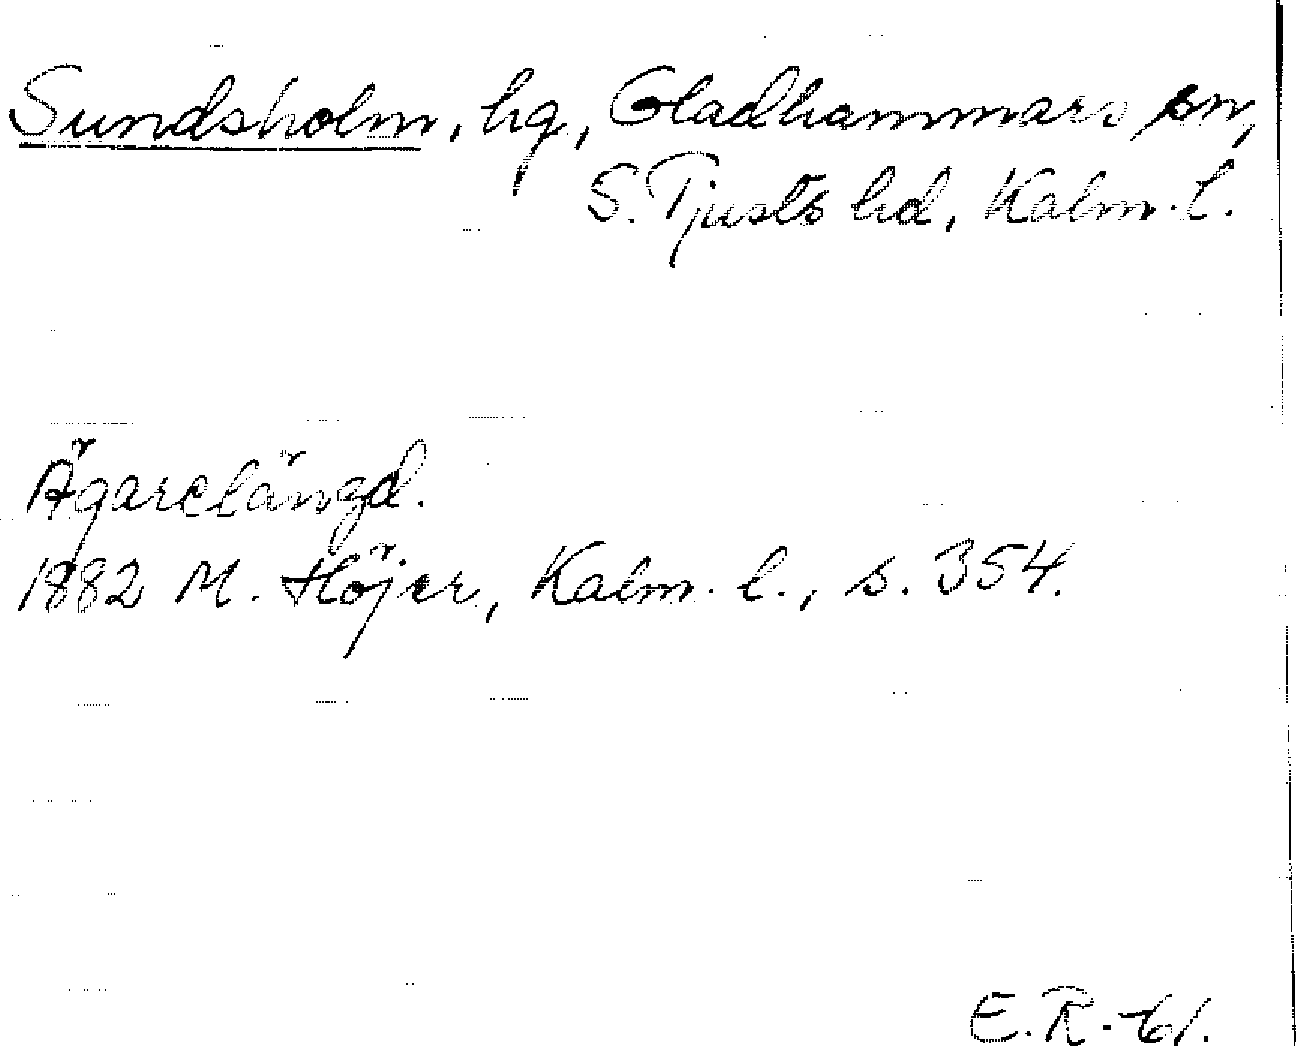 Sundsholm, hg, Gladhammars sn,
S. Tjusts hd, Kalm. l.
Ägarelängd.
1882 M. Höjer, Kalm. l., s. 354.
E.R.-61.